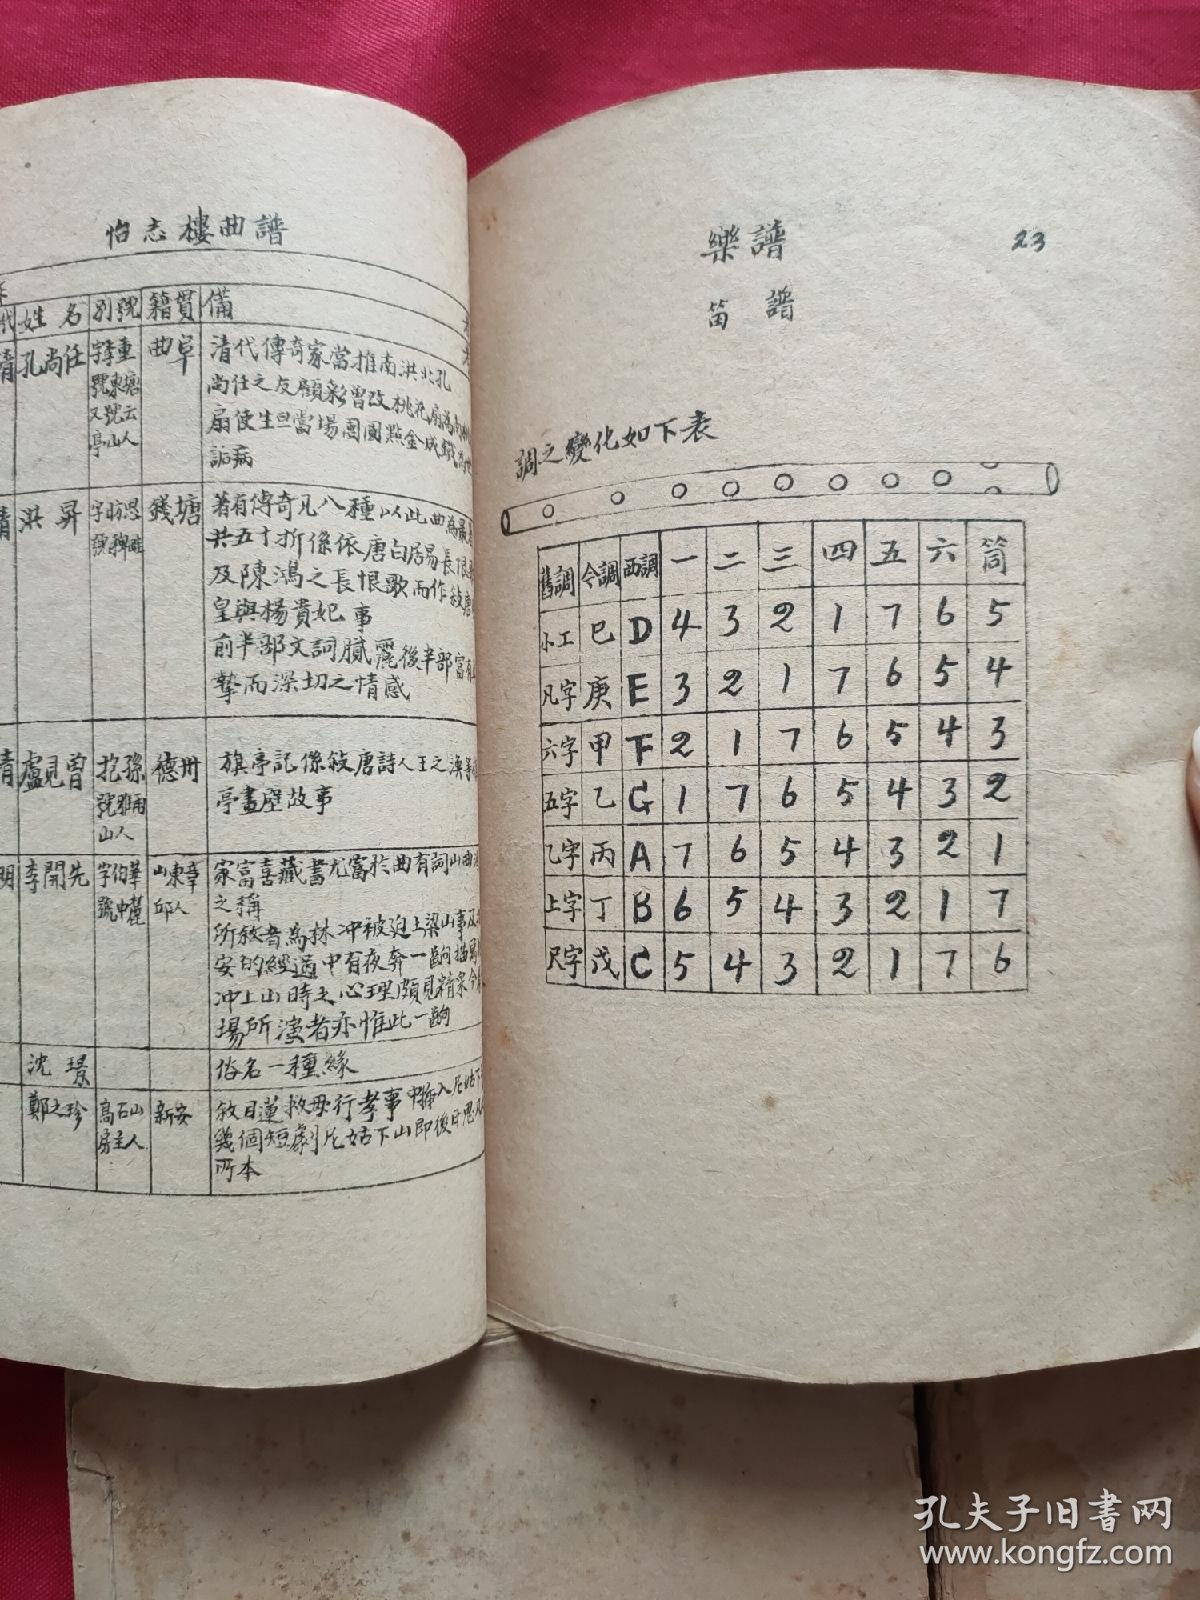 怡志樓曲譜
姓名 別號 籍貫 備
孔尚任 字季重 號東塘 又號云亭山人 曲阜
清代傳奇家當推南洪北孔
尚任之友顧彩曾改桃花扇為南
扇使生旦當場團圓點金成鐵
詬病
洪昇 字昉思 號稗畦 錢塘
著有傳奇凡八種以此曲為最
共五十折係依唐白居易長恨
及陳鴻之長恨歌而作敍唐
皇與楊貴妃事
前半部文詞膩麗後半部富有
摯而深切之情感
盧見曾 抱孫 號雅雨山人 德州
旗亭記係敍唐詩人王之渙
亭畫壁故事
明 李開先 字伯華 號中麓 山東章邱人
家富喜藏書尤富於曲有詞山曲
之稱
所敍者為林冲被迫上梁山事及
安的經過中有夜奔一齣描寫
冲上山時之心理頗見精采今
場所演者亦惟此一齣
沈璟 俗名一種緣
鄭之珍 高石山房主人 新安
敘目蓮救母行孝事中插入尼姑下
幾個短劇尼姑下山即後日思凡
所本
樂譜 23
笛譜
調之變化如下表
舊調 今調 西調 一 二 三 四 五 六 筒
小工 巳 D 4 3 2 1 7 6 5
凡字 庚 E 3 2 1 7 6 5 4
六字 甲 F 2 1 7 6 5 4 3
五字 乙 G 1 7 6 5 4 3 2
乙字 丙 A 7 6 5 4 3 2 1
上字 丁 B 6 5 4 3 2 1 7
尺字 戊 C 5 4 3 2 1 7 6
孔夫子旧書网
www.kongfz.com